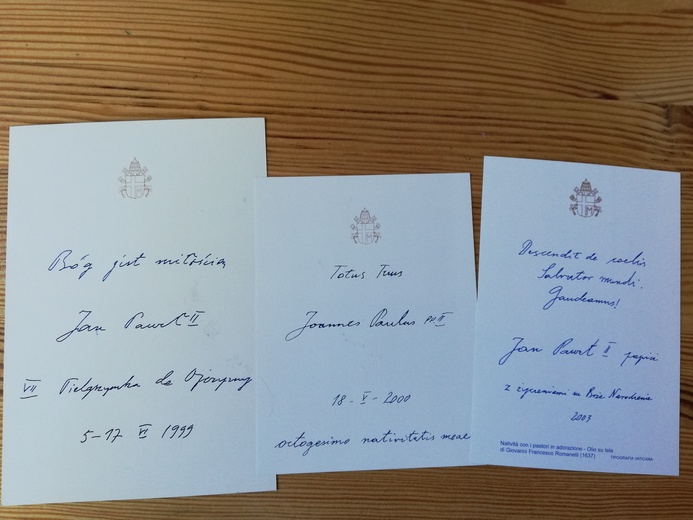 Bóg jest miłością
Jan Paweł II
VII Pielgrzymka do Ojczyzny
5-17 VI 1999
Totus Tuus
Joannes Paulus pp II
18-V-2000
octogesimo nativitatis meae
Descendit de coelis
Salvator mundi.
Gaudeamus!
Jan Paweł II papież
z życzeniami na Boże Narodzenie
2003
Natività con i pastori in adorazione - Olio su tela
di Giovanni Francesco Romanelli (1637)
TIPOGRAFIA VATICANA